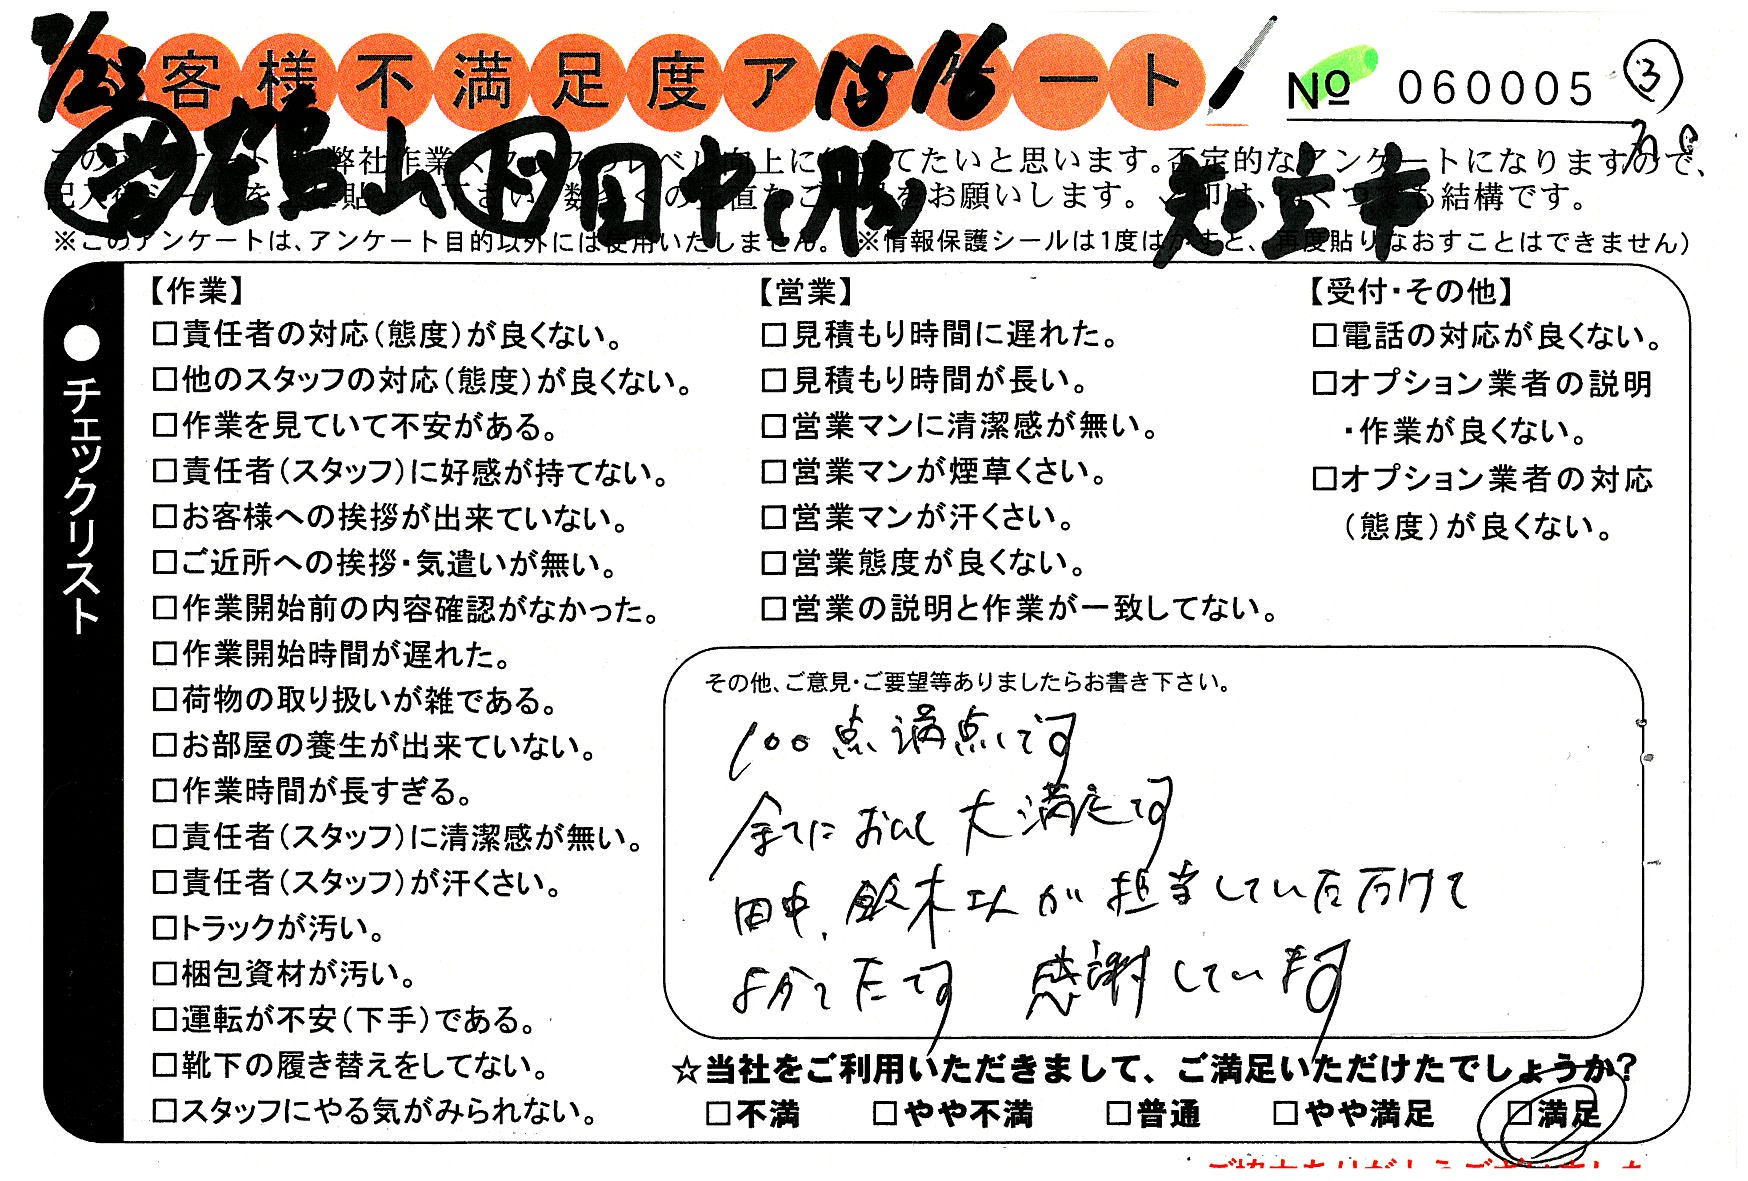 7/23
客様不満足度ア 15 16 ート
No 060005 ③
営 鶴山 作 田中、勝 足立中
※このアンケートは、アンケート目的以外には使用いたしません。(※情報保護シールは1度はがすと、再度貼りなおすことはできません)
●チェックリスト
【作業】
□責任者の対応(態度)が良くない。
□他のスタッフの対応(態度)が良くない。
□作業を見ていて不安がある。
□責任者(スタッフ)に好感が持てない。
□お客様への挨拶が出来ていない。
□ご近所への挨拶・気遣いが無い。
□作業開始前の内容確認がなかった。
□作業開始時間が遅れた。
□荷物の取り扱いが雑である。
□お部屋の養生が出来ていない。
□作業時間が長すぎる。
□責任者(スタッフ)に清潔感が無い。
□責任者(スタッフ)が汗くさい。
□トラックが汚い。
□梱包資材が汚い。
□運転が不安(下手)である。
□靴下の履き替えをしてない。
□スタッフにやる気がみられない。
【営業】
□見積もり時間に遅れた。
□見積もり時間が長い。
□営業マンに清潔感が無い。
□営業マンが煙草くさい。
□営業マンが汗くさい。
□営業態度が良くない。
□営業の説明と作業が一致してない。
【受付・その他】
□電話の対応が良くない。
□オプション業者の説明
・作業が良くない。
□オプション業者の対応
(態度)が良くない。
その他、ご意見・ご要望等ありましたらお書き下さい。
100点満点です
全てにおいて大満足です
田中、鈴木さんが担当していただけて
よかったです 感謝しています
☆当社をご利用いただきまして、ご満足いただけたでしょうか?
□不満 □やや不満 □普通 □やや満足 □満足
ご協力ありがとうございました